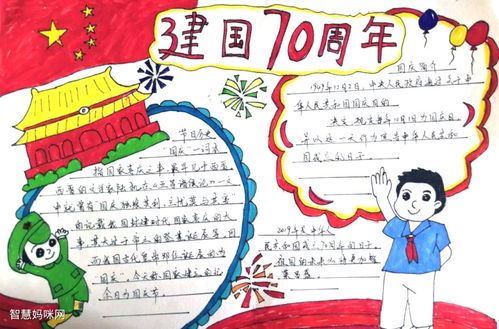 建国70周年
国庆简介
1949年12月2日,中央人民政府通过《中
华人民共和国国庆日的
决定,规定每年10月1日为国庆日,
并以这一天作为宣告中华人民共和
国成立的日子。
节日历史
"国庆"一词,本
指国家喜庆之事,最早见于西晋。
西晋的文学家陆机在《五等诸侯论》一
文中
我国封建时代国家喜庆的大
事,莫大过于帝王的登基、诞辰等。因
而我国古代皇帝即位、诞辰称为
"国庆"。今天称国家建立的纪
念日为国庆节。
2019年是中华人
民共和国成立70周年的日子,
祖国的未来必将更加繁
荣昌盛。
智慧妈咪网